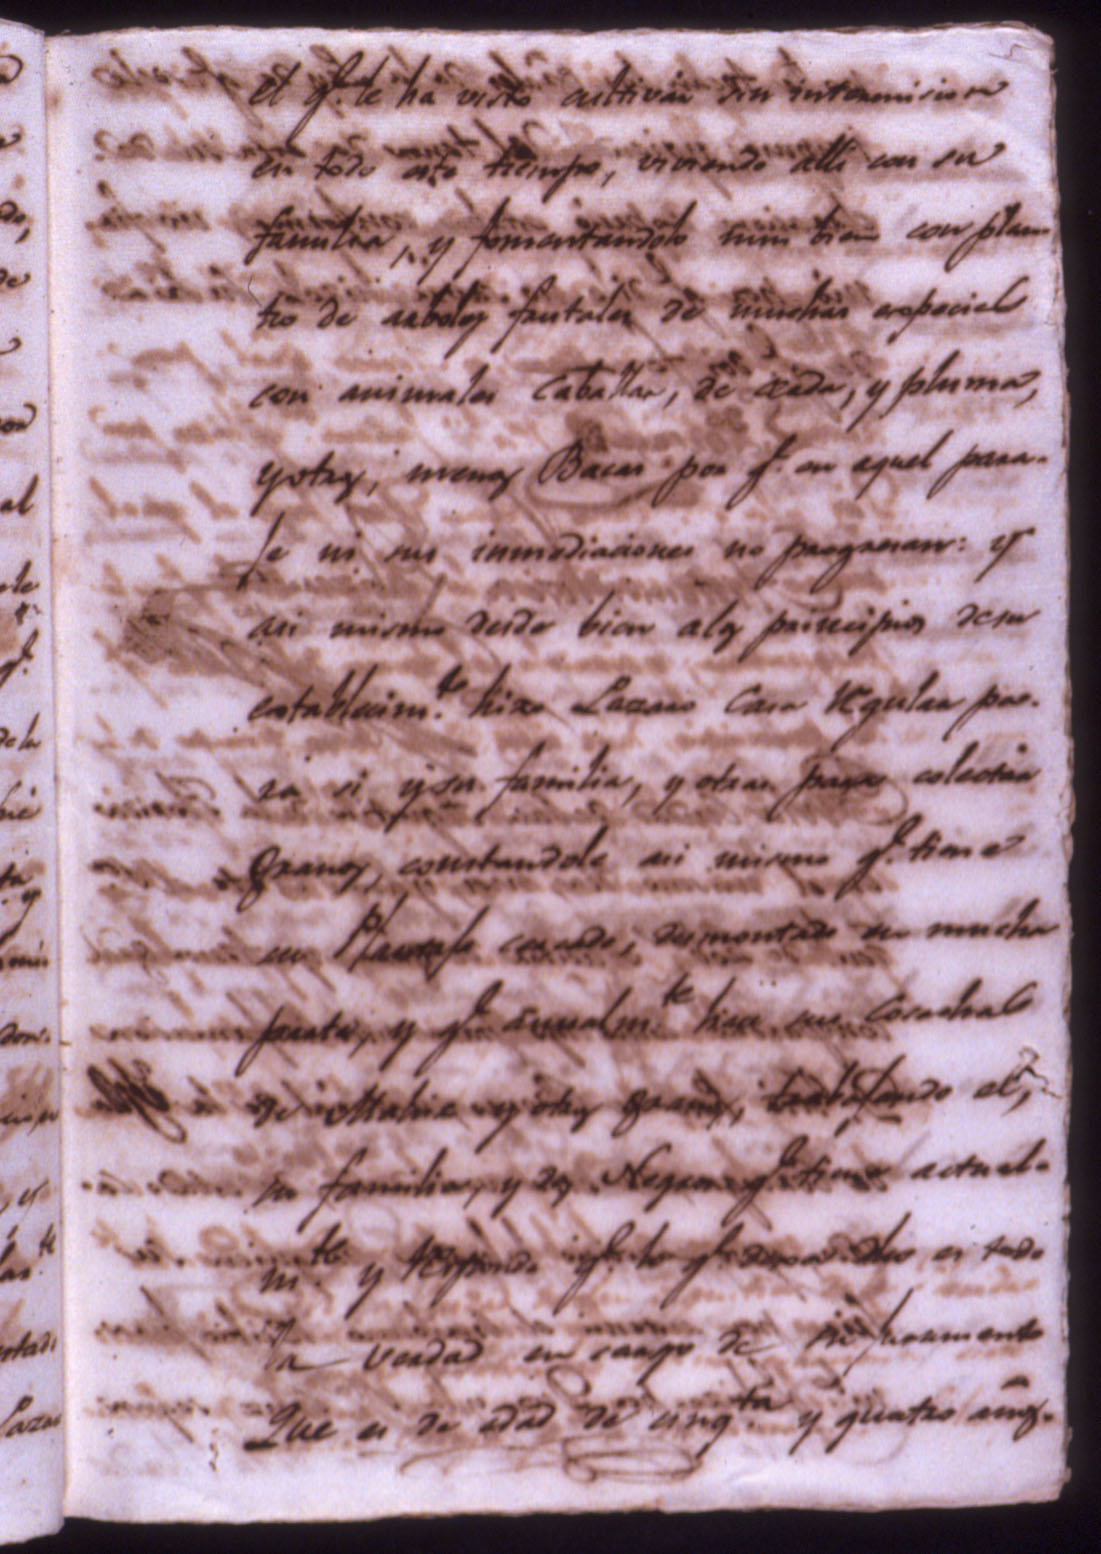 el q.e le ha visto cultivar sin intermision
en todo este tiempo, viviendo alli con su
familia, y fomentandolo mui bien con plan-
tio de arboles frutales de muchas especies
con animales Caballar, de cerda, y pluma,
y otros, menos Bacas por q.e en aquel para-
je ni sus inmediaciones no progresan: y
asi mismo desde bien a los principios de su
establecim.to hizo Lazaro Casa regular pa-
ra si y su familia, y otras para colectar
Granos, constandole asi mismo q.e tiene
su cercado, desmontado en mucha
parte, y q.e anualm.te hace sus Cosechas
de Maiz y otros granos, trabajando el,
su familia, y dos Negros q.e tiene actual-
m.te y responde q.e lo q.e es todo
la verdad en cargo de su juramento
Que es de edad de cinq.ta y quatro años.